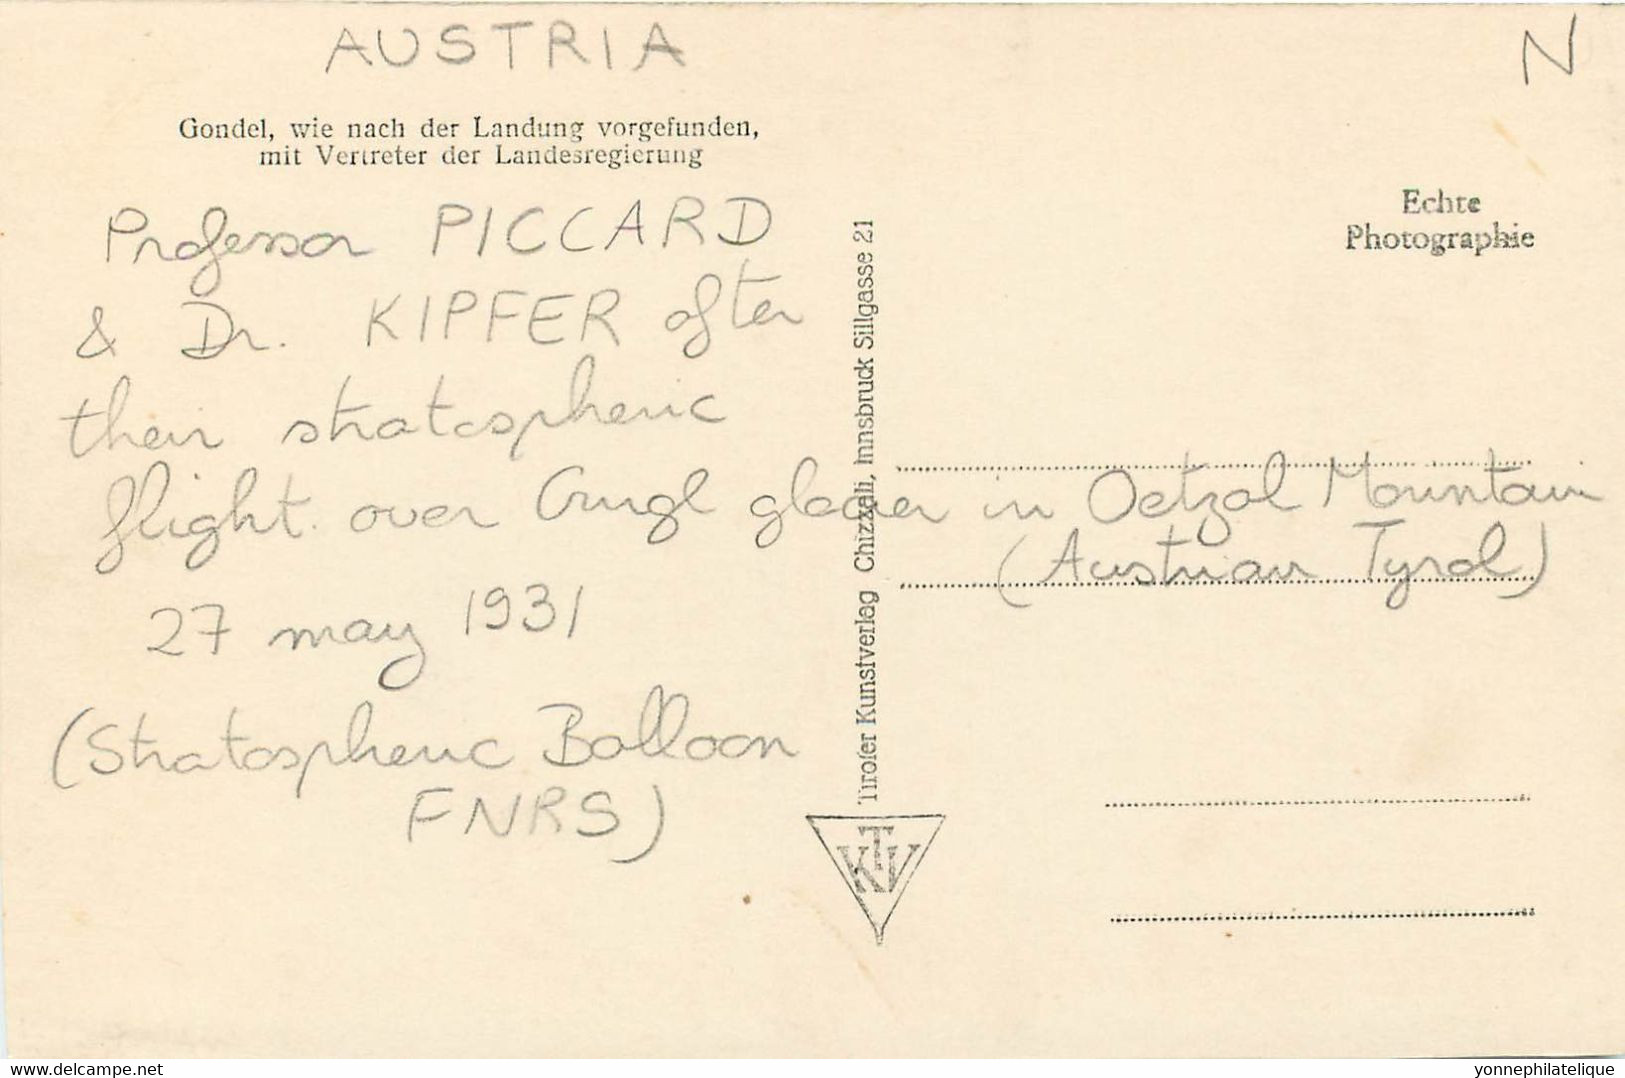 AUSTRIA
N
Gondel, wie nach der Landung vorgefunden,
mit Vertreter der Landesregierung
Echte
Photographie
Professor PICCARD
& Dr. KIPFER after
their stratospheric
flight. over Grugl glacier in Oetzal Mountain
(Austrian Tyrol)
27 may 1931
(Stratospheric Balloon
FNRS)
Tiroler Kunstverlag Chizzali, Innsbruck Sillgasse 21
TKV
delcampe.net
yonnephilatelique